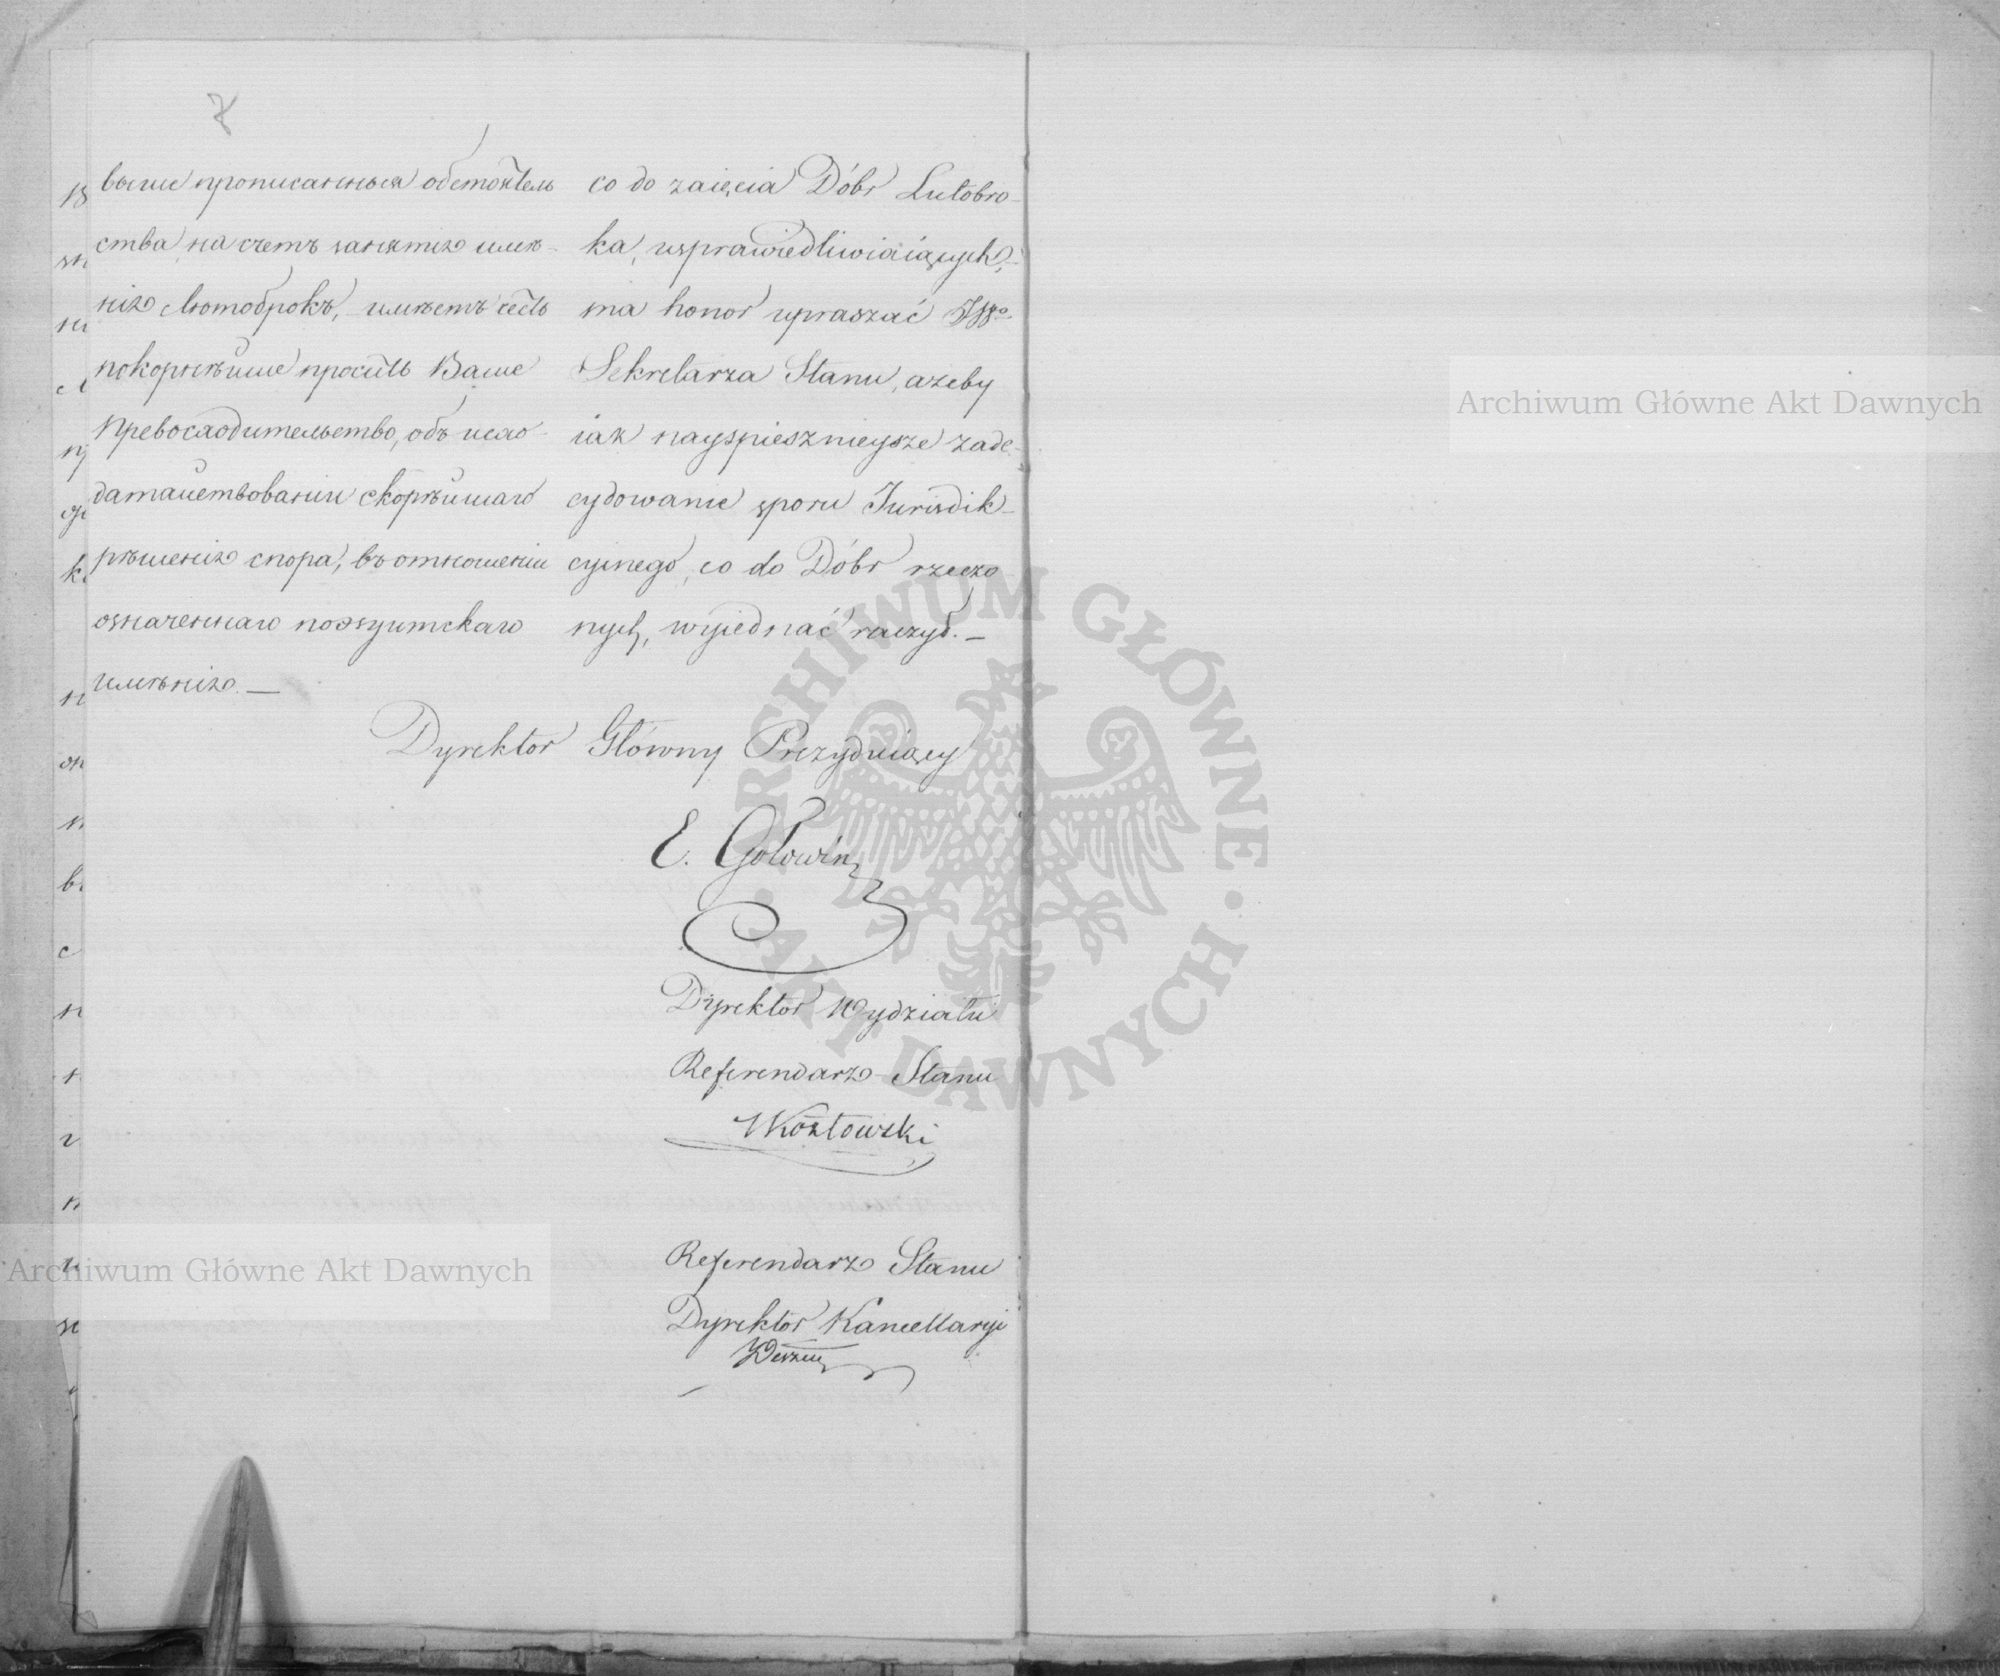 7
выше прописанныя обстоятель
ства на счетъ занятія имѣ-
нія Лютоброкъ, имѣетъ честь
покорнѣйше просить Ваше
Превосходительство, объ исхо-
датайствованіи скорѣйшаго
рѣшенія спора, въ отношеніи
означеннаго поэзуитскаго
имѣнія. —
co do zaięcia Dóbr Lutobro-
ka, usprawiedliwiaiących,-
ma honor upraszać JW°
Sekretarza Stanu, ażeby
iak nayspieszniejsze zade-
cydowanie sporu Jurisdik-
cyinego, co do Dóbr rzeczo
nych, wyiednać raczył. —
Dyrektor Główny Prezyduiący
E. Gołowin
Dyrektor Wydziału
Referendarz Stanu
Kozłowski
Referendarz Stanu
Dyrektor Kancellaryi
Archiwum Główne Akt Dawnych
Archiwum Główne Akt Dawnych
ARCHIWUM GŁÓWNE · AKT DAWNYCH ·